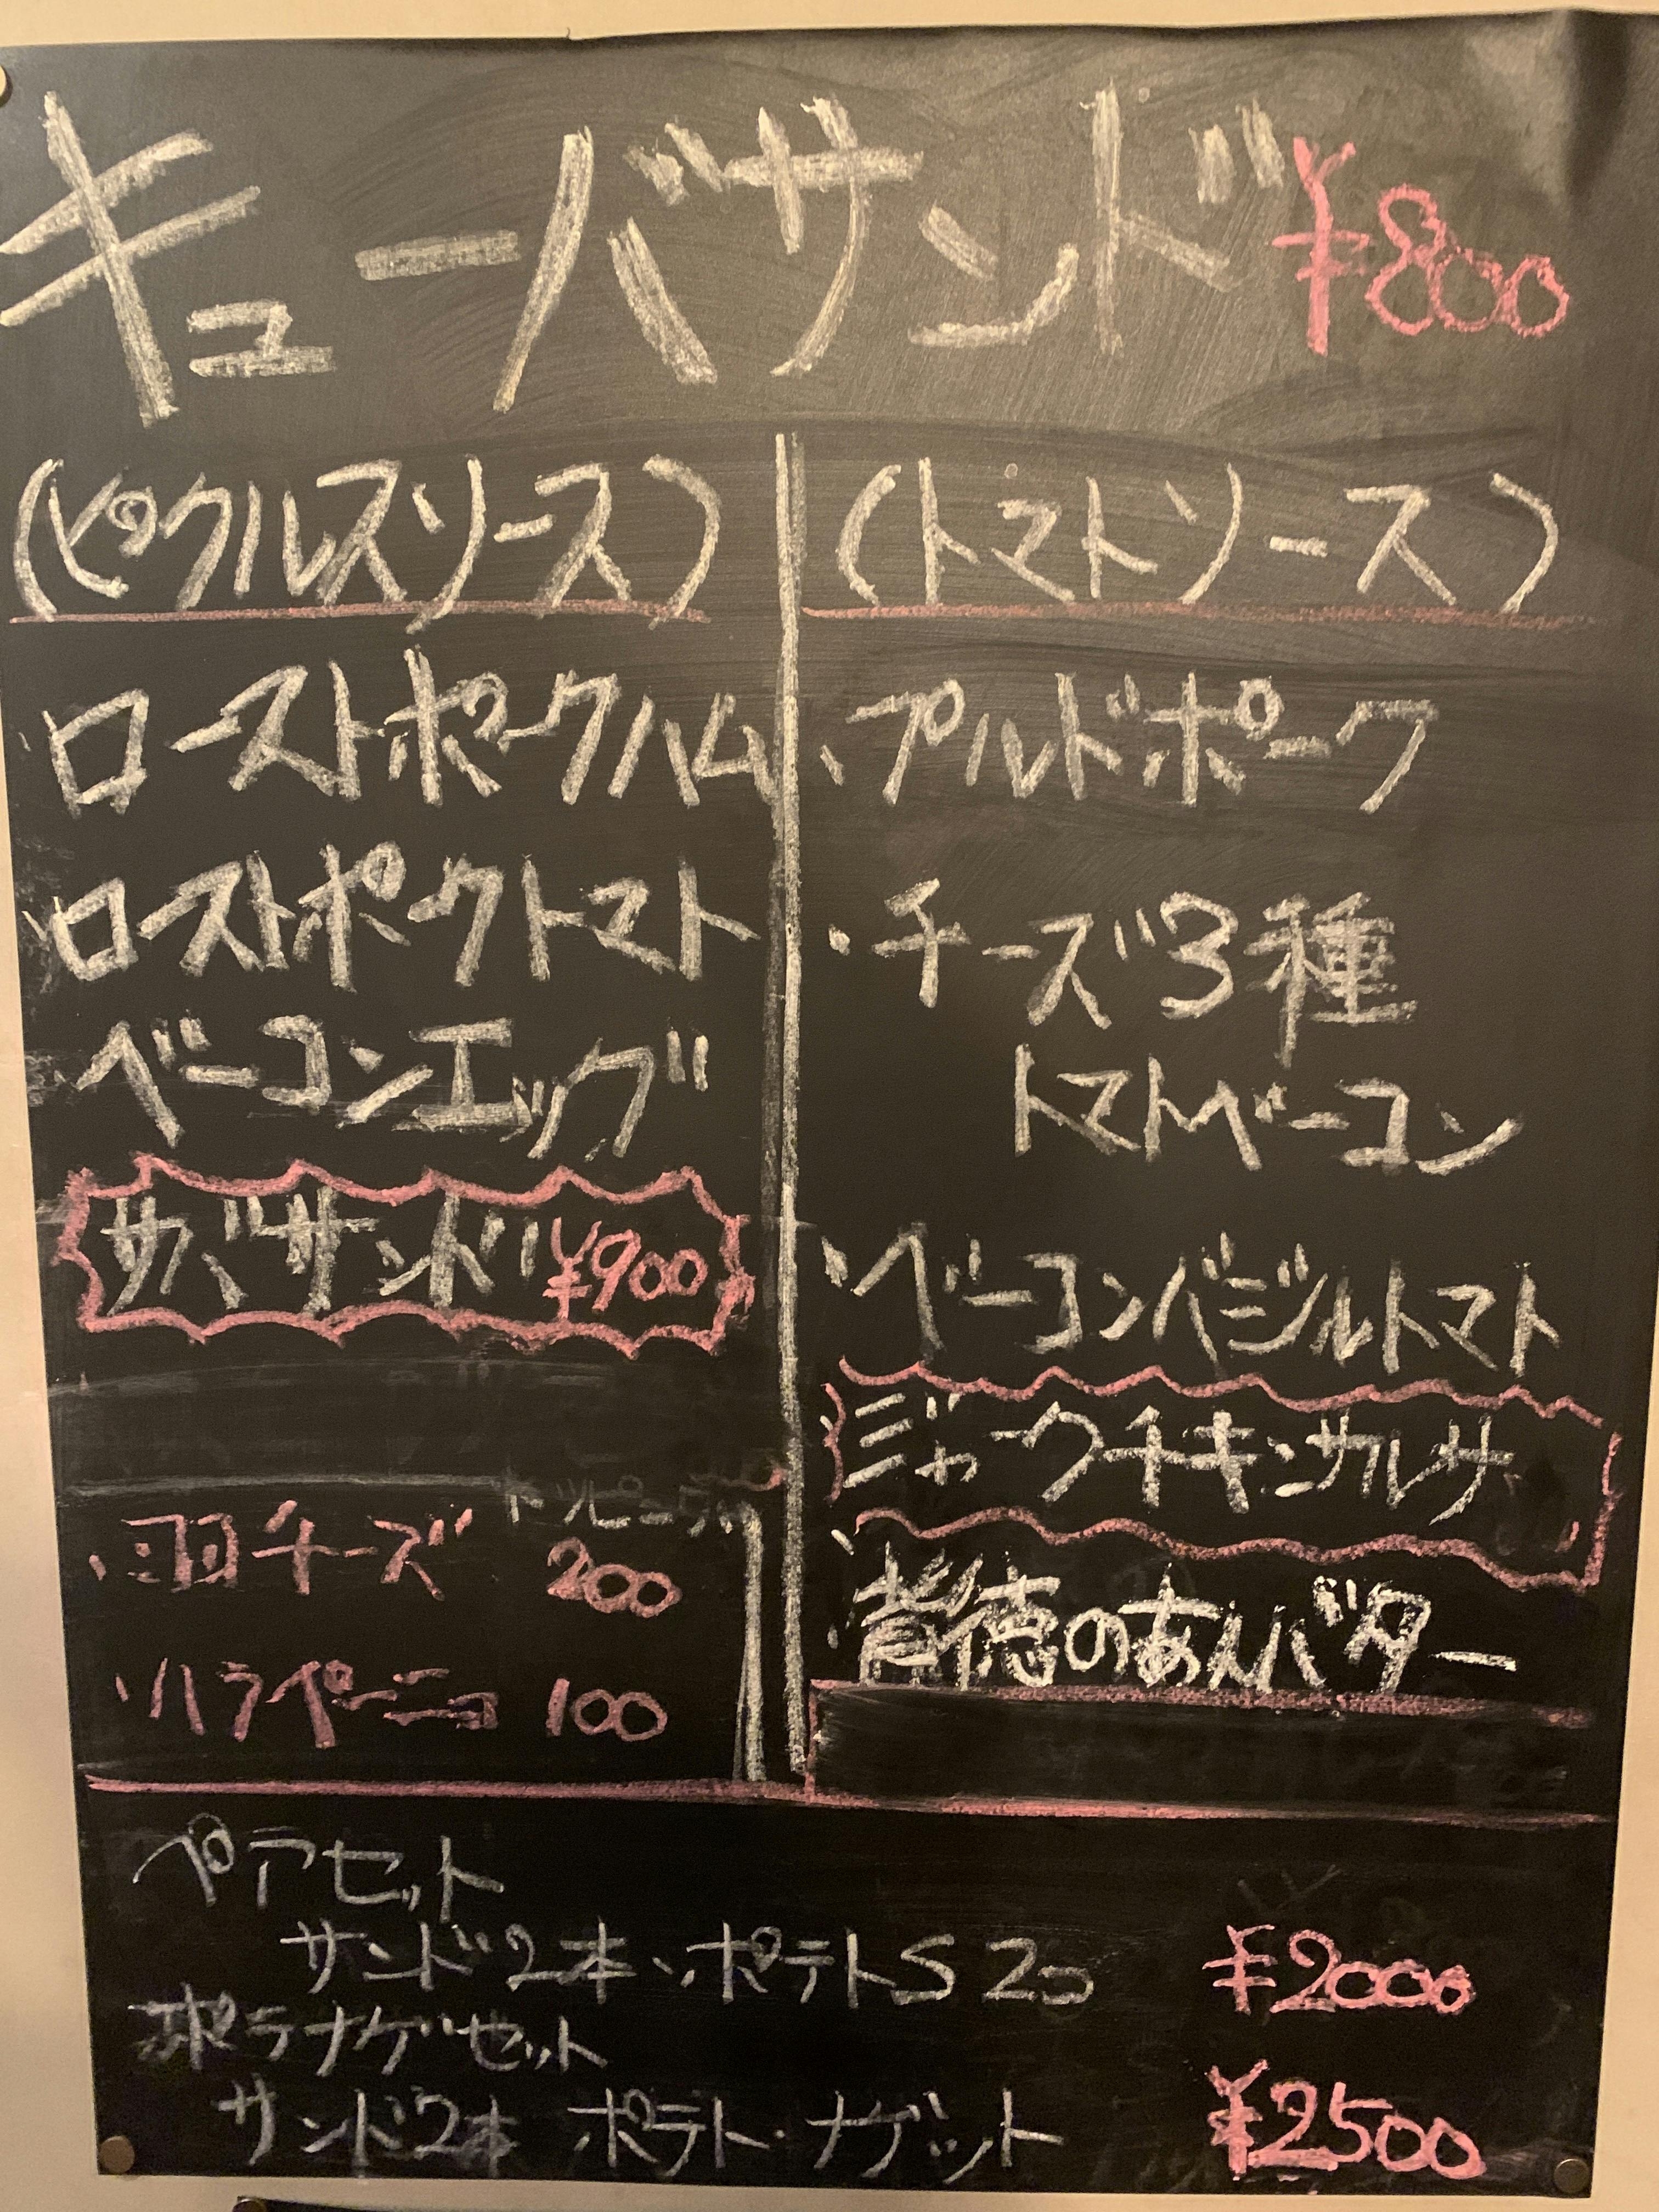 キューバサンド ¥800
(ピックルスソース)
・ローストポークハム
・ローストポークトマト
・ベーコンエッグ
サバサンド ¥900
トッピング
・追加チーズ 200
・ハラペーニョ 100
(トマトソース)
・プルドポーク
・チーズ3種
トマトベーコン
・ベーコンバジルトマト
・ジャークチキンサルサ
・背徳のあんバター
ペアセット
サンド2本・ポテトS 2コ ¥2000
ポテナゲセット
サンド2本 ポテト・ナゲット ¥2500